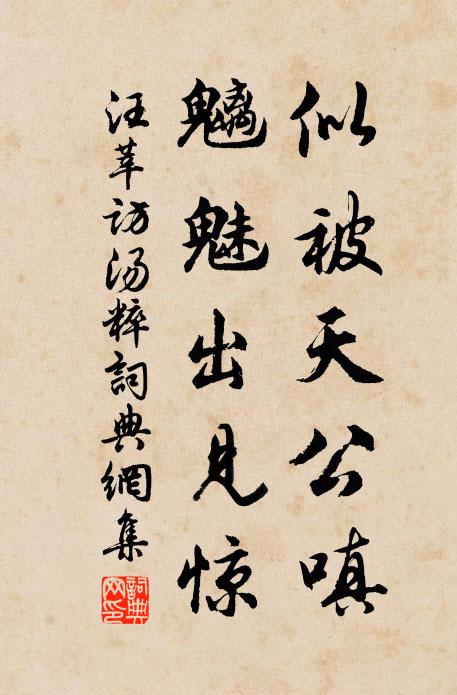 似被天公嗔
魑魅出见惊
汪莘访汤粹詞典網集
詞典
网印